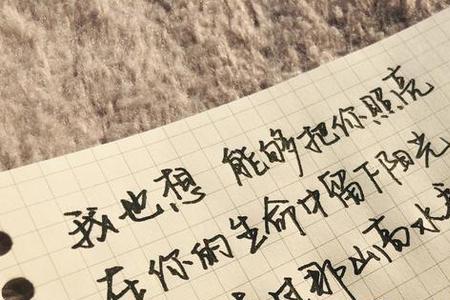 我也想 能够把你照亮
在你的生命中留下阳光
那山高水